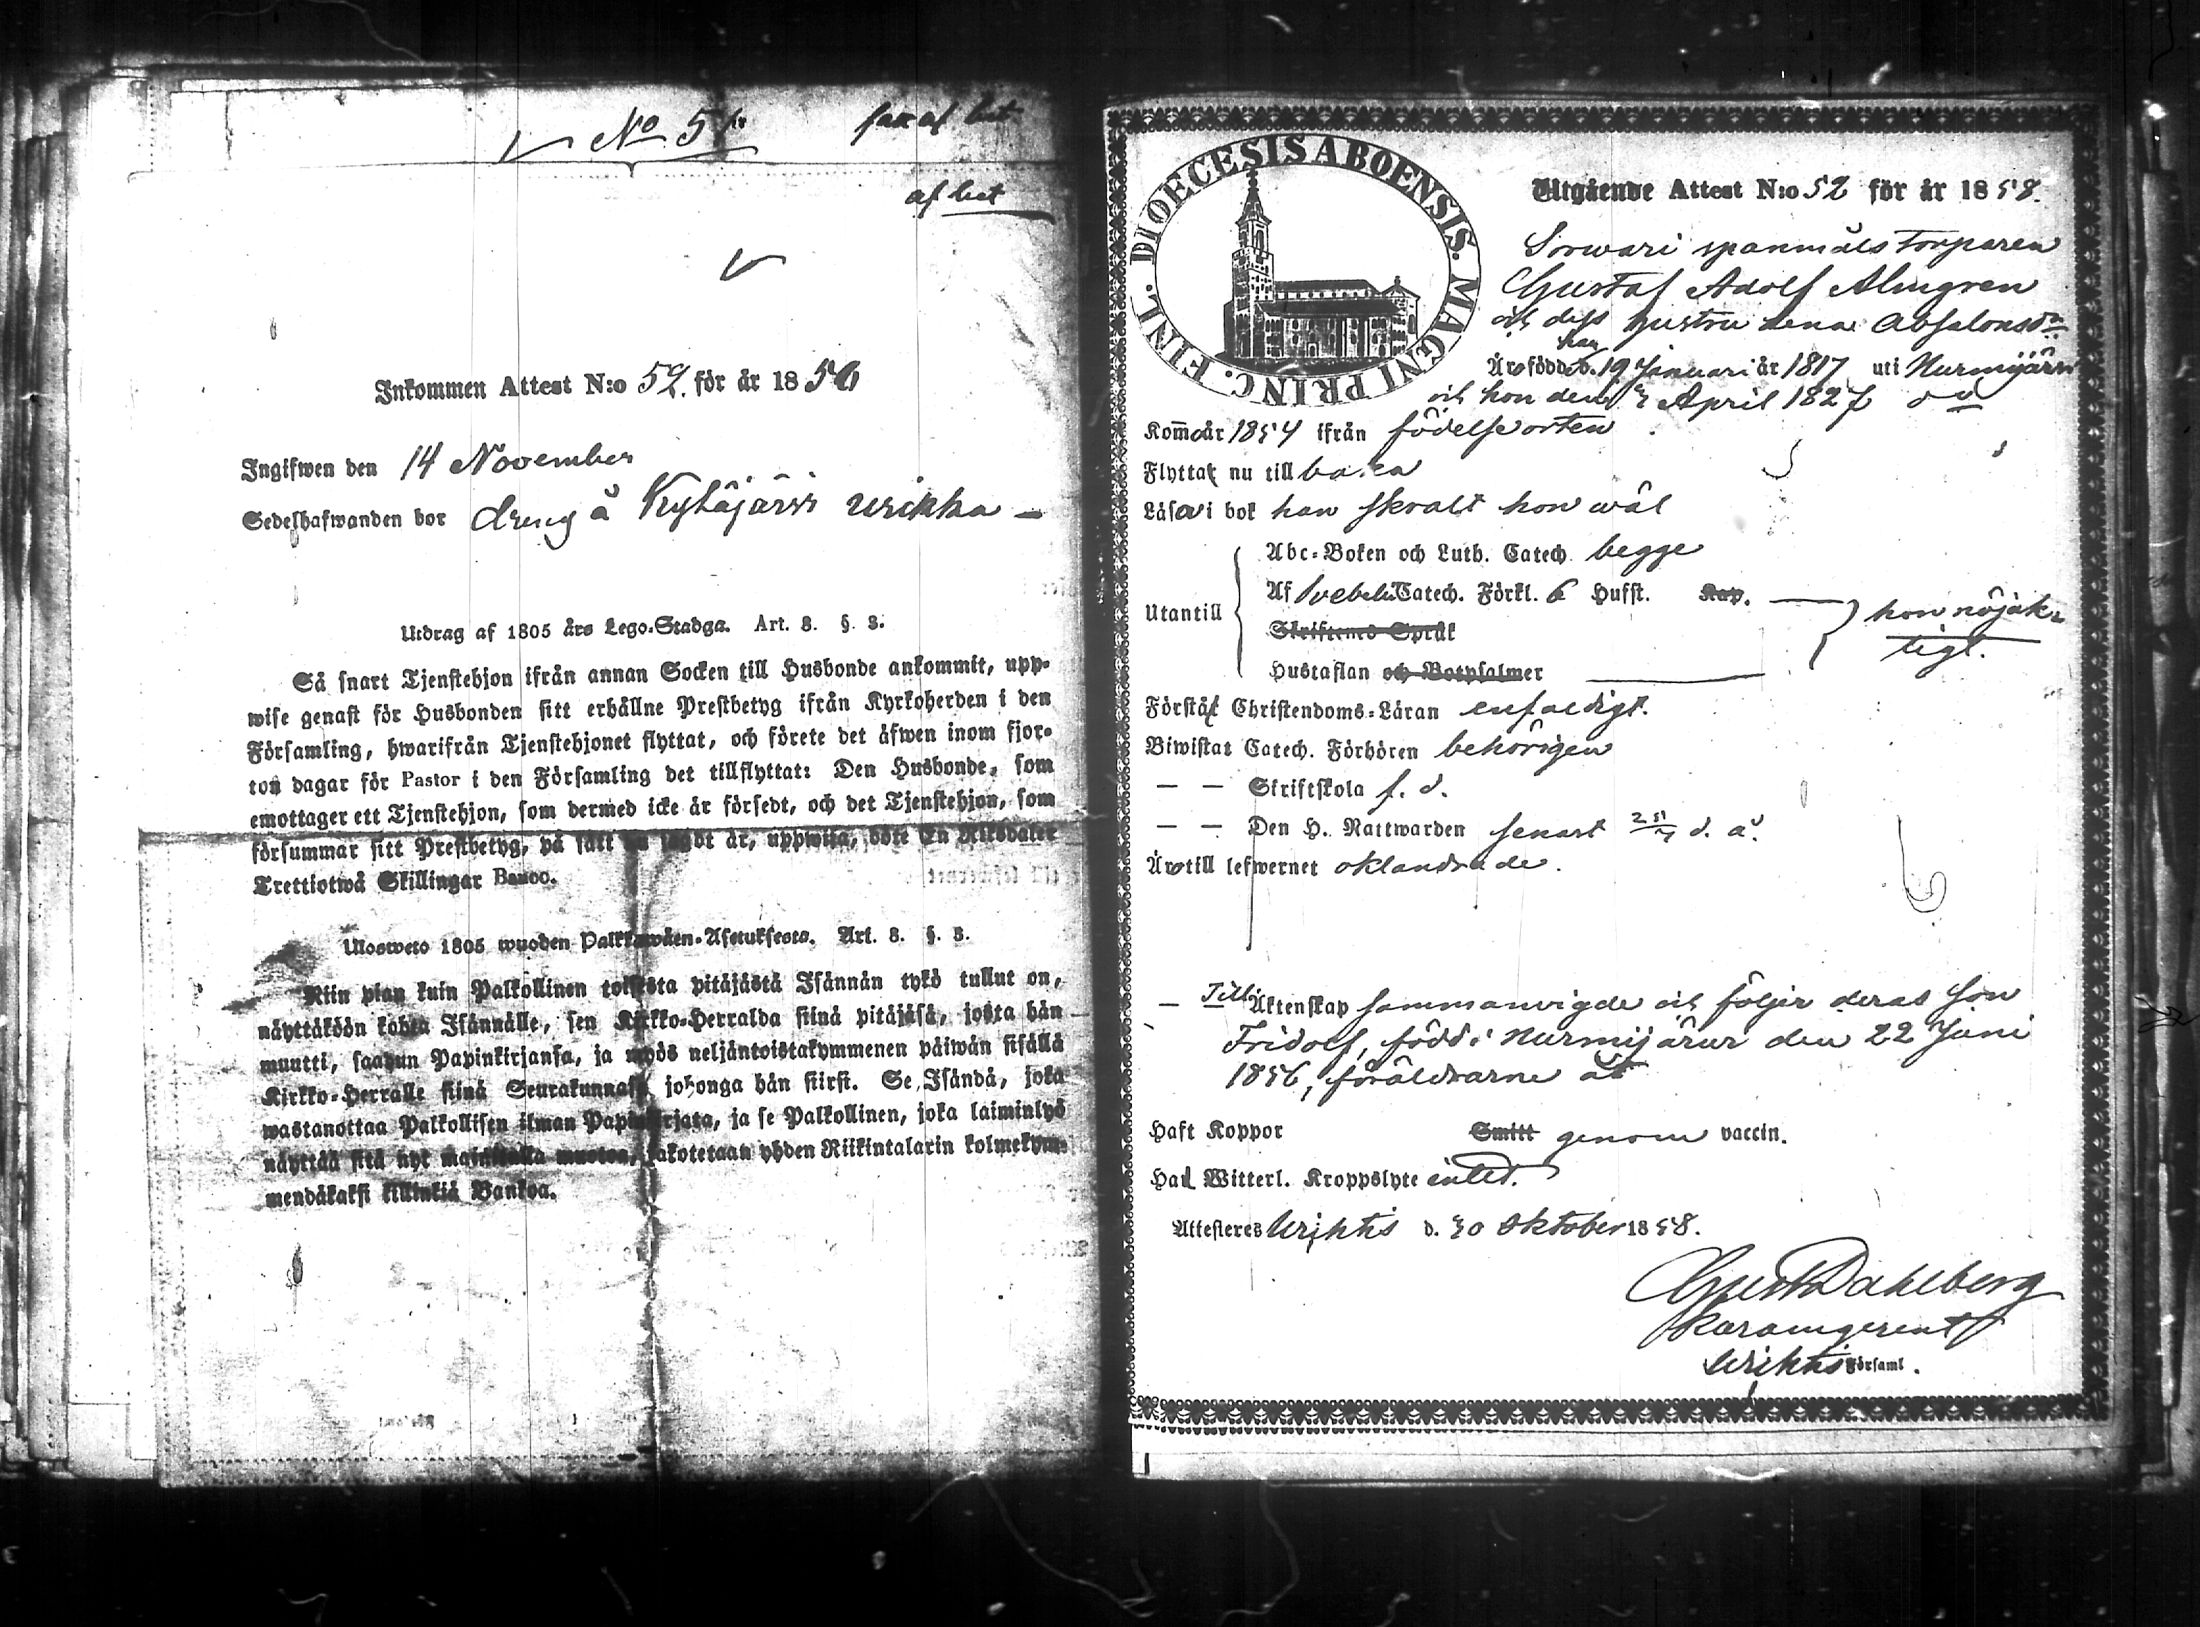 No 51
af bet
Inkommen Attest N:o 52. för år 1856
Ingifwen den 14 November
Sedelhafwanden bor dreng å Kytäjärvi
Utdrag af 1805 års Lego-Stadga. Art. 8. §. 3.
Så snart Tjenstehjon ifrån annan Socken till Husbonde ankommit, upp-
wise genast för Husbonden sitt erhållne Prestbetyg ifrån Kyrkoherden i den
Församling, hwarifrån Tjenstehjonet flyttat, och förete det äfwen inom fjor-
ton dagar för Pastor i den Församling det tillflyttat: Den Husbonde, som
emottager ett Tjenstehjon, som dermed icke är försedt, och det Tjenstehjon, som
försummar sitt Prestbetyg, på sätt nu sagdt är, uppwisa, böte En Riksdaler
Trettiotwå Skillingar Banco.
Ulosweto 1805 wuoden Palkkawäen-Asetuksesta. Art. 8. §. 3.
Niin pian kuin Palkollinen toisesta pitäjästä Isännän tykö tullut on,
näyttäköön kohta Isännälle, sen Kirkko-Herralda siinä pitäjäsä, josta hän
muutti, saadun Papinkirjansa, ja myös neljäntoistakymmenen päiwän sisällä
Kirkko-Herralle siinä Seurakunnasa, johonga hän siirsi. Se Isändä, joka
wastanottaa Palkollisen ilman Papinkirjata, ja se Palkollinen, joka laiminlyö
näyttää sitä nyt mainitulla muotoa, sakotetaan yhden Riikintalarin kolmekym-
mendäkaksi killinkiä Bankoa.
DIOECESIS ABOENSIS. MAGNI PRINC. FINL.
Utgående Attest N:o 52 för år 1858.
Sorwari spanmåls torparen
Gustaf Adolf Almgren
och dess hustru Lena Absalonsdr
han
Äro födde d. 19 Januari år 1817 uti Nurmijärvi
och hon den 3 April 1827
Komo år 1854 ifrån födelseorten.
Flytta nu till baka
Läsa i bok han skralt hon wäl
Utantill
Abc-Boken och Luth. Catech begge
Af Svebelii Catech. Förkl. 6 Hufst. Kap.
Skriftenes Språk
Hustaflan och Botpsalmer
hon nöjak-
tigt.
Förstå Christendoms-Läran enfaldigt.
Biwistat Catech. Förhören behörigen
— — Skriftskola f. d.
— — Den H. Nattwarden senast d. å.
Äro till lefwernet oklandrade.
— Till Äktenskap sammanvigde och följer deras son
Fridolf, född i Nurmijärvi den 22 Juni
1856, föräldrarne åt
Haft Koppor Smitt genom vaccin.
Had Witterl. Kroppslyte intet.
Attesteras Wichtis d. 30 Oktober 1858.
Gust Dahlberg
Wichtis Församl.